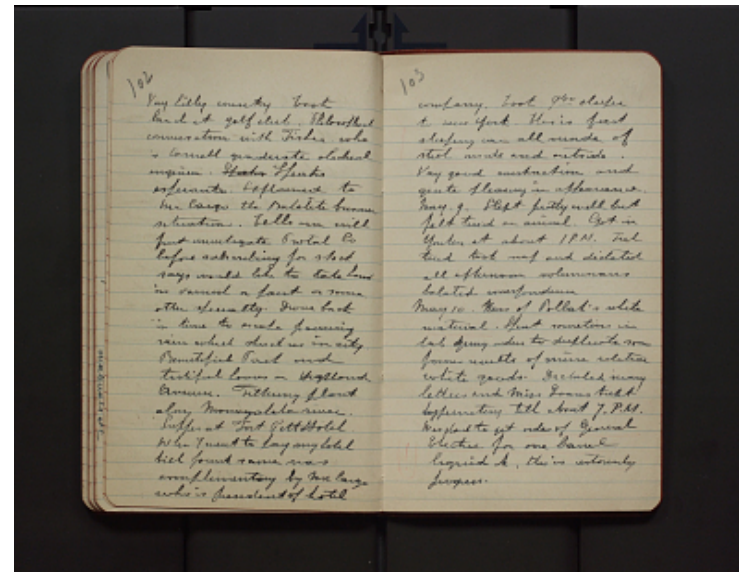 102
Very hilly country Took
lunch at golf club. Philosophical
conversation with Fisher who
is Cornell graduate electrical
engineer. Speaks
esperanto. Explained to
Mc Cargo the Bakelite business
situation. Tells me will
first investigate Co
before subscribing for stock
says would like to take
in varnish a paint or some
other specialty. Drove back
in time to avoid pouring
rain which struck us in city.
Beautiful Park and
tasteful houses on Highland
Avenue. plant
along Monongahela river.
Supper at Fort Pitt Hotel
When I went to pay my hotel
bill found same was
complimentary by Mc Cargo
who is president of hotel
103
company. Took sleeper
to New York This is first
sleeping car all made of
steel inside and outside.
Very good construction and
quite pleasing in appearance.
May 9. Slept pretty well but
felt tired on arrival. Got in
Yonkers at about 1 P.M. Feel
tired took nap and dictated
all afternoon voluminous
belated correspondence
May 10. News of Pollak's white
material. Spent sometime in
lab trying to duplicate some
former results of mine relative
white goods. Dictated many
letters and Miss kept
typewriting till about 7. P.M.
Was glad to get order of General
Electric for one barrel
liquid A, this is
progress.